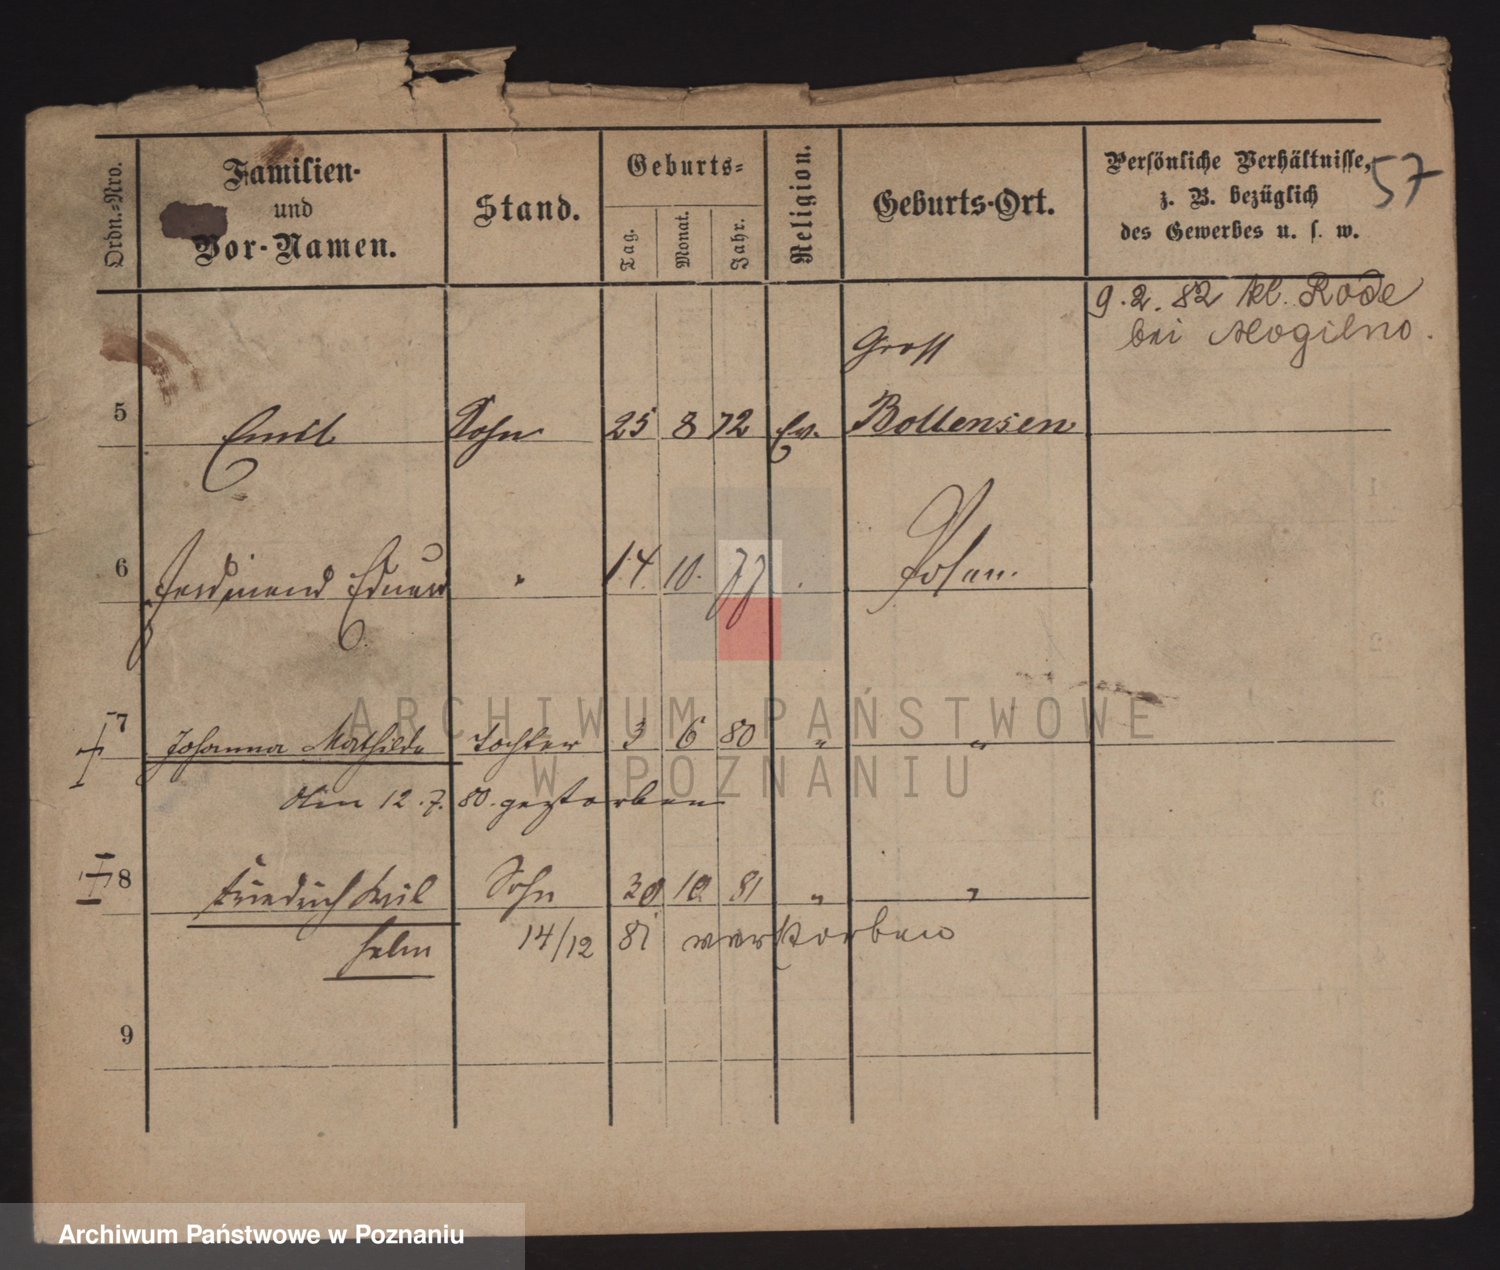 57
Ordn.-Nro.
Familien- und Vor-Namen.
Stand.
Geburts-
Tag. Monat. Jahr.
Religion.
Geburts-Ort.
Persönliche Verhältnisse,
z. B. bezüglich
des Gewerbes u. s. w.
9. 2. 82 kl. Rode
bei Mogilno.
Gross
5 Emil Sohn 25 8 72 Ev. Bollensen
6 Ferdinand Eduard " 14. 10. 77 . Posen.
7 Johanna Mathilde Tochter 3 6 80 " "
den 12. 7. 80. gestorben
8 Friedrich Wil Sohn 30 10 81 " "
helm 14/12 81 verstorben
9
ARCHIWUM PAŃSTWOWE
W POZNANIU
Archiwum Państwowe w Poznaniu